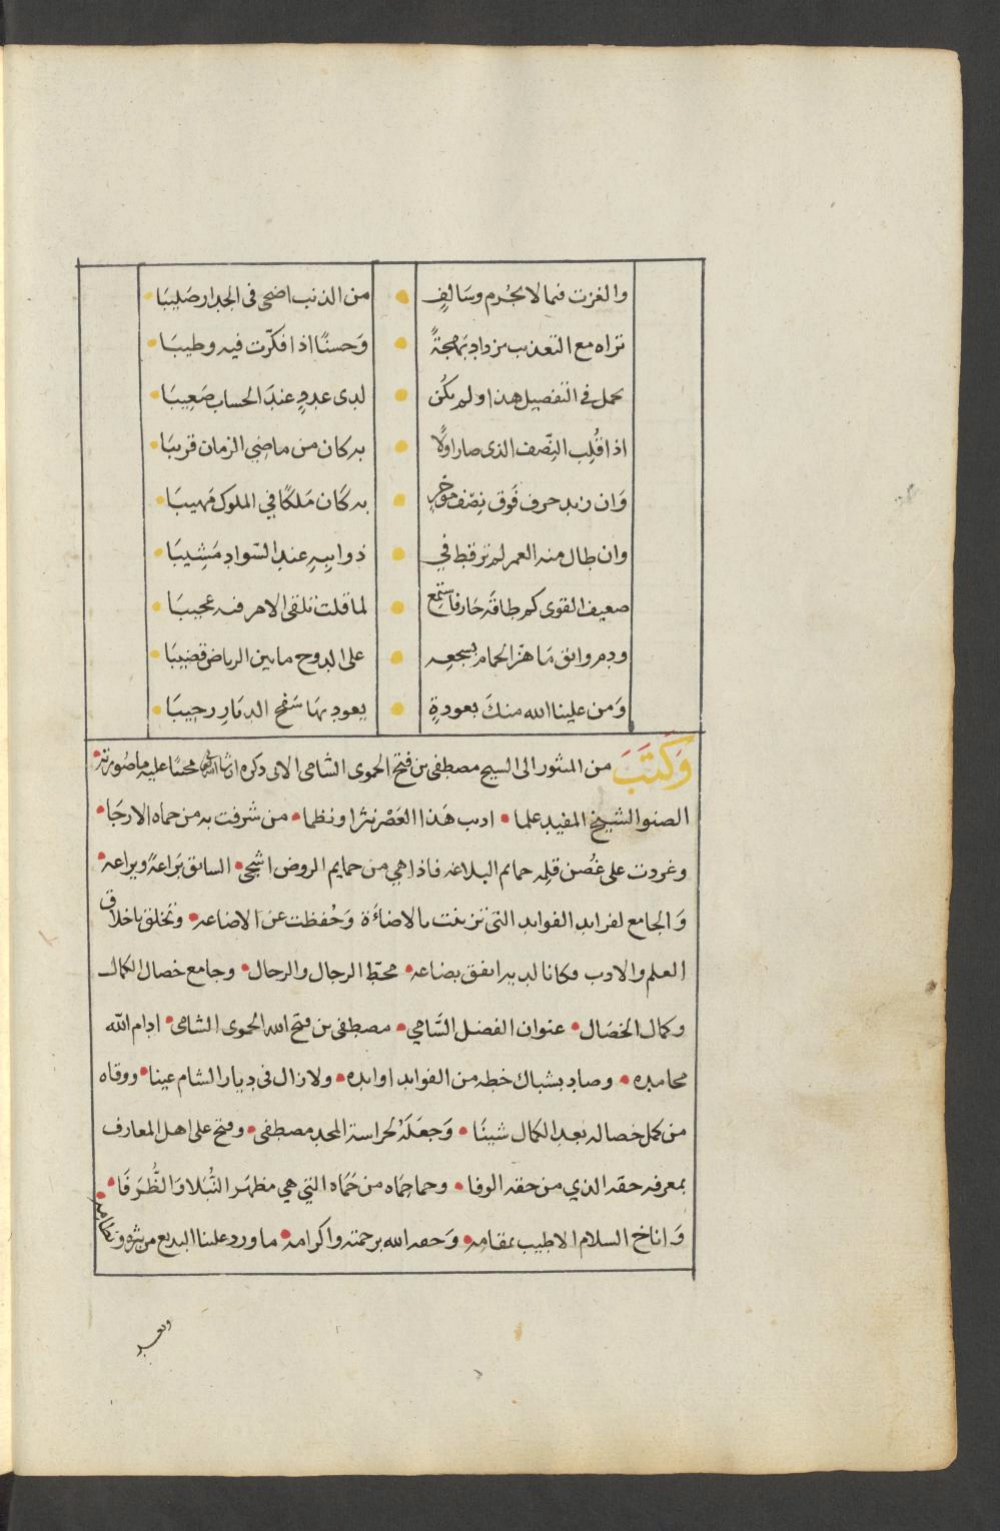 والغزت فيما لا بجُرم وسَالفٍ • من الذنب اضحى فى الجدار صَلِيبَا •
تراه مع التعذيب يزداد بَهجةً • وَحسنًا اذا فكّرت فيه وطيبَا •
بحمل فى التفصيل هذا ولم يكُن • لدى عددٍ عندَ الحساب صَعِيبَا •
اذا قُلِب النِّصف الذى صار اولًا • به كان من ماضى الزمان قريبَا •
وَان زيد حرف فَوق نِصف مؤخرٍ • به كَان مَلكًا فى الملوك مَهيبَا •
وان طال منه العمر لم تر قط في • ذوايبِهِ عند السّوادِ مَشِيبَا •
ضعيف القوى كم طاقة حَاز فاستمِع • لما قلت تلقى الامر فيه عجيبَا •
ودم واثق مَا هزّ الحمام بسجعِهِ • على الدوح ما بين الرياض قضِيبَا •
وَمن علينا الله منكَ بعودةٍ • يعود بهَا سَفح الديَارِ رحِيبَا •
وَكَتَبَ من المنثور الى الشيخ مصطفى بن فتح الحموى الشامى الاتى ذكره ان شا الله مجيبًا عليه ما صُورته •
الصنو الشيخ المفيد علما • اديب هَذا العَصْر نثرا ونظما • من شرفت به من حماه الارجَا •
وغردت على غُصن قلمِه حمايم البلاغه فاذا هي من حمايم الروض اشجى • السابق بَراعَةً ويراعه •
وَالجامع لفرايد الفوايد التى تزينت بالاضاءَة وَحُفظت عن الاضاعه • وتخلق باخلاق
العلم والادب وكانا لديه انفق بضاعه • محَطّ الرجال والرحال • وجامع خصال الكمال
وكمال الخصَال • عنوان الفضل السَّامي • مصطفى بن فتح الله الحموى الشامى • ادام الله
محامده • وصاد بشباك خطه من الفوايد اوابده • ولا زال فى ديار الشام عينا • ووقاه
من كمل خصاله بعد الكمال شينًا • وَجعَلَهُ لحراسة المجد مصطفى • وفتح على اهل المعارف
بمعرفه حقه الذي من حقه الوفا • وحما حِمَاه من حَمَاه التي هي مظهَر النُّبَلا وَالظُّرَفَا •
وَاناخ السلام الاطيب بمقامِه • وَحفه الله برحمته واكرامه • ما ورد علينا البديع من نثره ونظامه •